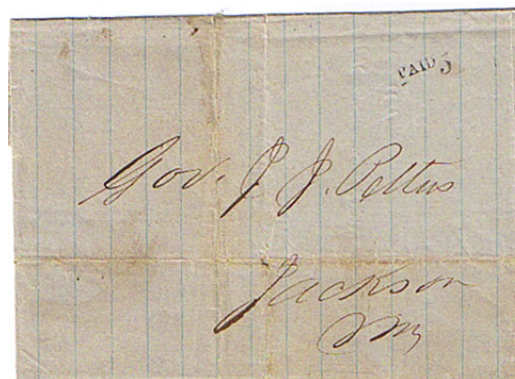 PAID 5
Gov. J. J. Pettus
Jackson
Mi